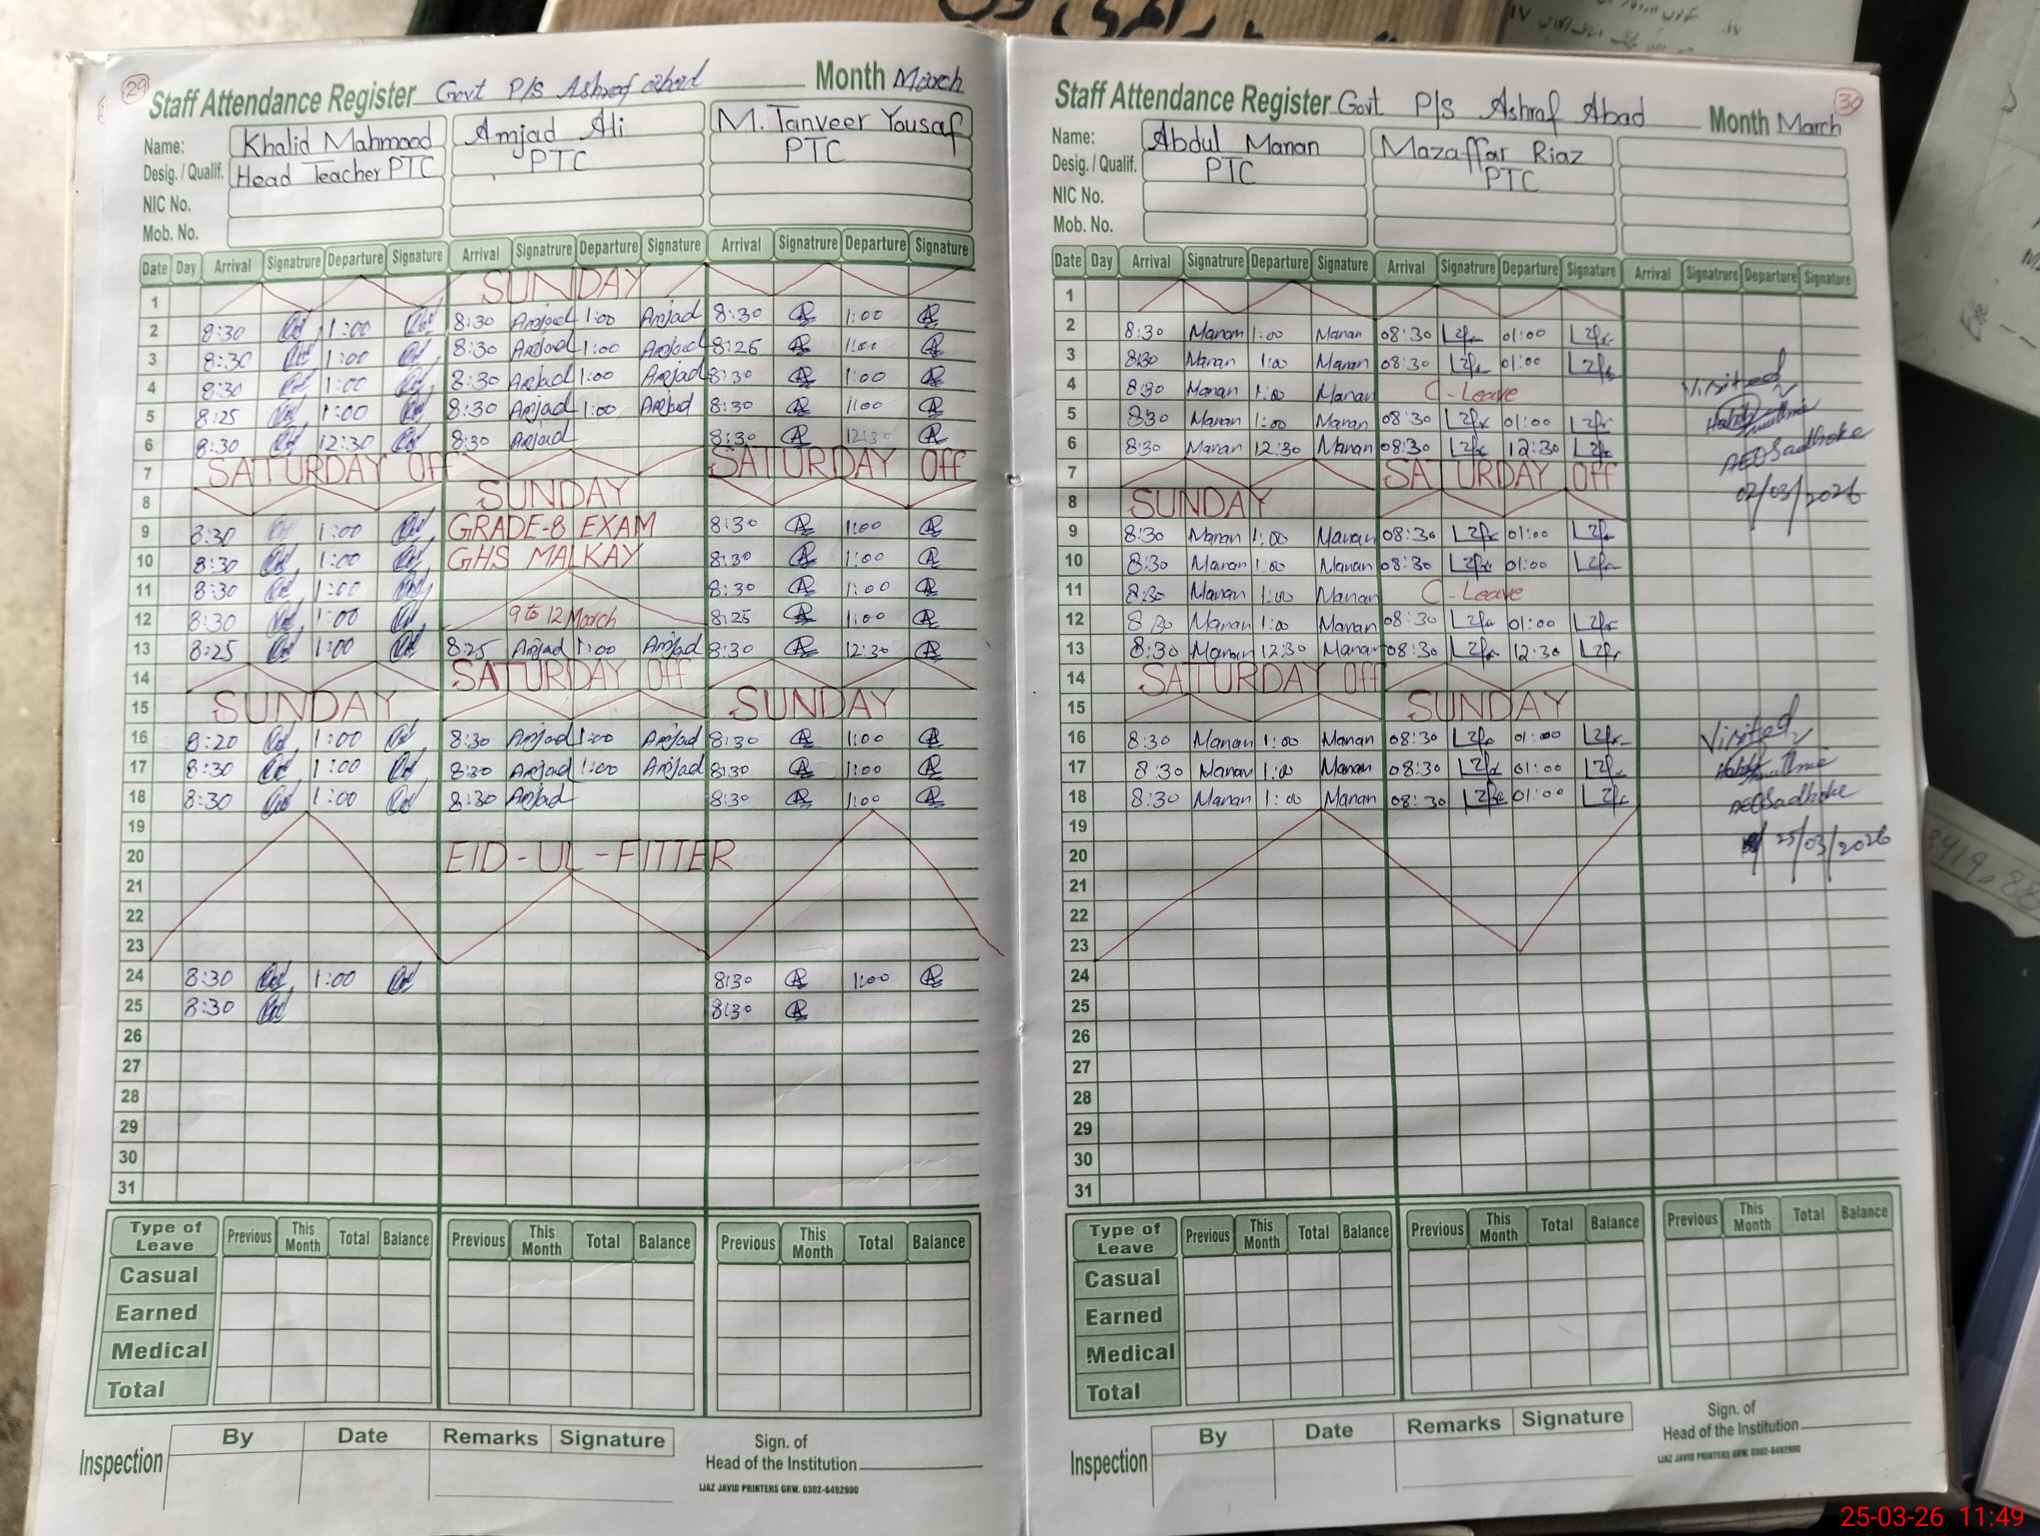 29
Staff Attendance Register Govt P/S Ashraf abad Month March
Name: Khalid Mahmood Amjad Ali M. Tanveer Yousaf
Desig. / Qualif. Head Teacher PTC PTC PTC
NIC No.
Mob. No.
Date Day Arrival Signatrure Departure Signature Arrival Signatrure Departure Signature Arrival Signatrure Departure Signature
1 SUNDAY
2 8:30 1:00 8:30 Amjad 1:00 Amjad 8:30 1:00
3 8:30 1:00 8:30 Amjad 1:00 Amjad 8:25 1:00
4 8:30 1:00 8:30 Amjad 1:00 Amjad 8:30 1:00
5 8:25 1:00 8:30 Amjad 1:00 Amjad 8:30 1:00
6 8:30 12:30 8:30 Amjad 8:30 12:30
7 SATURDAY Off SATURDAY Off
8 SUNDAY
9 8:30 1:00 GRADE-8 EXAM 8:30 1:00
10 8:30 1:00 GHS MALKAY 8:30 1:00
11 8:30 1:00 8:30 1:00
12 8:30 1:00 9 to 12 March 8:25 1:00
13 8:25 1:00 8:25 Amjad 1:00 Amjad 8:30 12:30
14 SATURDAY Off
15 SUNDAY SUNDAY
16 8:20 1:00 8:30 Amjad 1:00 Amjad 8:30 1:00
17 8:30 1:00 8:30 Amjad 1:00 Amjad 8:30 1:00
18 8:30 1:00 8:30 Amjad 8:30 1:00
19
20 EID-UL-FITTER
21
22
23
24 8:30 1:00 8:30 1:00
25 8:30 8:30
26
27
28
29
30
31
Type of Leave Previous This Month Total Balance Previous This Month Total Balance Previous This Month Total Balance
Casual
Earned
Medical
Total
Inspection By Date Remarks Signature
Sign. of
Head of the Institution
IJAZ JAVID PRINTERS GRW. 0302-6492900
30
Staff Attendance Register Govt P/S Ashraf Abad Month March
Name: Abdul Manan Mazaffar Riaz
Desig. / Qualif. PTC PTC
NIC No.
Mob. No.
Date Day Arrival Signatrure Departure Signature Arrival Signatrure Departure Signature Arrival Signatrure Departure Signature
1
2 8:30 Manan 1:00 Manan 08:30 01:00
3 8:30 Manan 1:00 Manan 08:30 01:00
4 8:30 Manan 1:00 Manan C-Leave
5 8:30 Manan 1:00 Manan 08:30 01:00
6 8:30 Manan 12:30 Manan 08:30 12:30
7 SATURDAY Off
8 SUNDAY
9 8:30 Manan 1:00 Manan 08:30 01:00
10 8:30 Manan 1:00 Manan 08:30 01:00
11 8:30 Manan 1:00 Manan C-Leave
12 8:30 Manan 1:00 Manan 08:30 01:00
13 8:30 Manan 12:30 Manan 08:30 12:30
14 SATURDAY Off
15 SUNDAY
16 8:30 Manan 1:00 Manan 08:30 01:00
17 8:30 Manan 1:00 Manan 08:30 01:00
18 8:30 Manan 1:00 Manan 08:30 01:00
19
20
21
22
23
24
25
26
27
28
29
30
31
Visited
AEO Sadhoke
02/03/2026
Visited
AEO Sadhoke
25/03/2026
Type of Leave Previous This Month Total Balance Previous This Month Total Balance Previous This Month Total Balance
Casual
Earned
Medical
Total
Inspection By Date Remarks Signature
Sign. of
Head of the Institution
IJAZ JAVID PRINTERS GRW. 0302-6492900
25-03-26 11:49